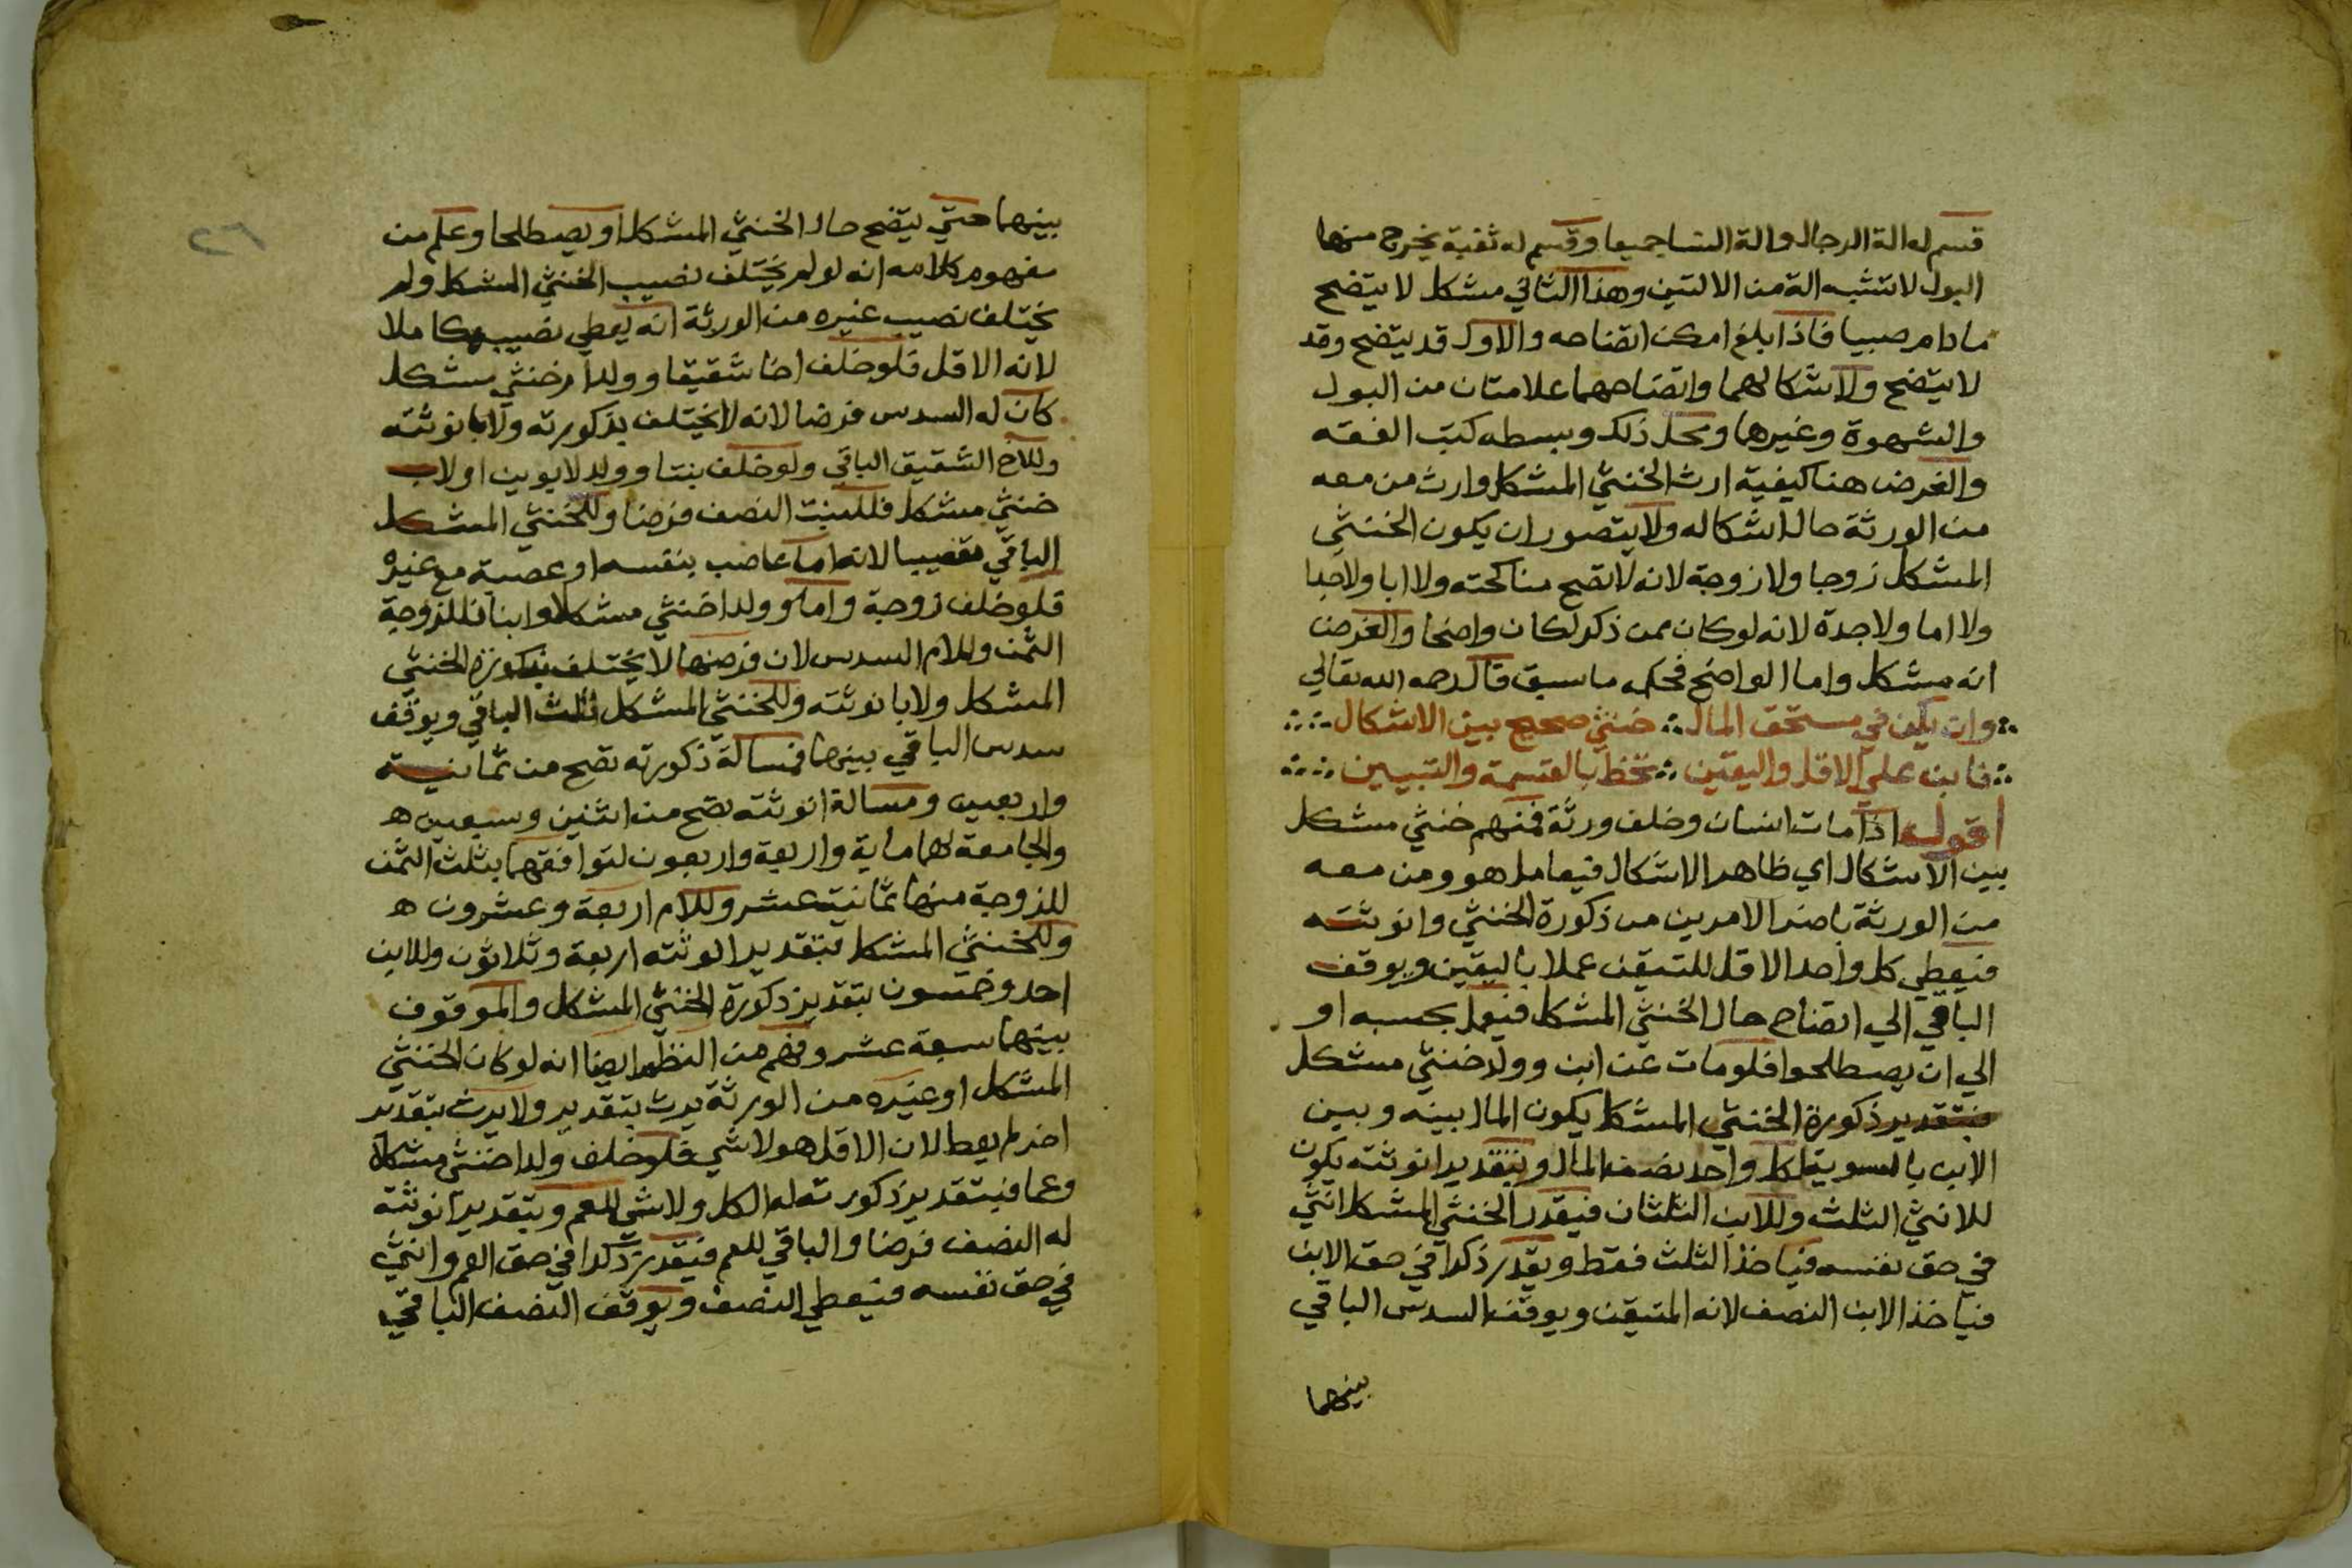 قسم له الة الرجال والة النسا جميعا وقسم له ثقبة يخرج منها
البول لا تشبه الة من الالتين وهذا الثاني مشكل لا يتضح
ما دام صبيا فاذا بلغ امكن اتضاحه والاول قد يتضح وقد
لا يتضح ولاشكالهما واتضاحهما علامتان من البول
والشهوة وغيرها ومحل ذلك وبسطه كتب الفقه
والغرض هنا كيفية ارث الخنثي المشكل وارث من معه
من الورثة حال اشكاله ولا يتصور ان يكون الخنثي
المشكل زوجا ولا زوجة لانه لا تصح مناكحته ولا ابا ولا جدا
ولا اما ولا جدة لانه لو كان ممن ذكر لكان واضحا والغرض
انه مشكل واما الواضح فحكمه ما سبق قال رحمه الله تعالي
وان يكن في مستحق المال خنثي صحيح بين الاشكال
فابن علي الاقل واليقين تحظ بالقسمة والتبيين
اقول اذا مات انسان وخلف ورثة فمنهم خنثي مشكل
بين الاشكال اي ظاهر الاشكال فيعامل هو ومن معه
من الورثة باضر الامرين من ذكورة الخنثي وانوثته
فيعطي كل واحد الاقل للتيقن عملا باليقين ويوقف
الباقي الي اتضاح حال الخنثي المشكل فيعمل بحسبه او
الي ان يصطلحوا فلو مات عن ابن وولد خنثي مشكل
فبتقدير ذكورة الخنثي المشكل يكون المال بينه وبين
الابن بالسوية لكل واحد نصف المال وبتقدير انوثته يكون
للانثي الثلث وللابن الثلثان فيقدر الخنثي المشكل انثي
في حق نفسه فياخذ الثلث فقط ويقدر ذكرا في حق الابن
فياخذ الابن النصف لانه المتيقن ويوقف السدس الباقي
بينهما
٢٦
بينهما حتي يتضح حال الخنثي المشكل او يصطلحا وعلم من
مفهوم كلامه انه لو لم يختلف نصيب الخنثي المشكل ولم
يختلف نصيب غيره من الورثة انه يعطي نصيبه كاملا
لانه الاقل فلو خلف اخا شقيقا وولد ام خنثي مشكل
كان له السدس فرضا لانه لا يختلف بذكورته ولا بانوثته
وللاخ الشقيق الباقي ولو خلف بنتا وولد لابوين او لاب
خنثي مشكل فللبنت النصف فرضا وللخنثي المشكل
الباقي تعصيبا لانه اما عاصب بنفسه او عصبة مع غيره
فلو خلف زوجة واما وولدا خنثي مشكلا وابنا فللزوجة
الثمن وللام السدس لان فرضهما لا يختلف بذكورة الخنثي
المشكل ولا بانوثته وللخنثي المشكل ثلث الباقي ويوقف
سدس الباقي بينهما فمسالة ذكورته تصح من ثمانية
واربعين ومسالة انوثته تصح من اثنين وسبعين ه
والجامعة لهما ماية واربعة واربعون لتوافقهما بثلث الثمن
للزوجة منها ثمانية عشر وللام اربعة وعشرون ه
وللخنثي المشكل بتقدير انوثته اربعة وثلاثون وللابن
احد وخمسون بتقدير ذكورة الخنثي المشكل والموقوف
بينهما سبعة عشر وفهم من النظم ايضا انه لو كان الخنثي
المشكل او غيره من الورثة يرث بتقدير ولا يرث بتقدير
اخر لم يعط لان الاقل هو لا شي فلو خلف ولدا خنثي مشكلا
وعما فبتقدير ذكورته له الكل ولا شي للعم وبتقدير انوثته
له النصف فرضا والباقي للعم فيقدر ذكرا في حق العم وانثي
في حق نفسه فيعطي النصف ويوقف النصف الباقي